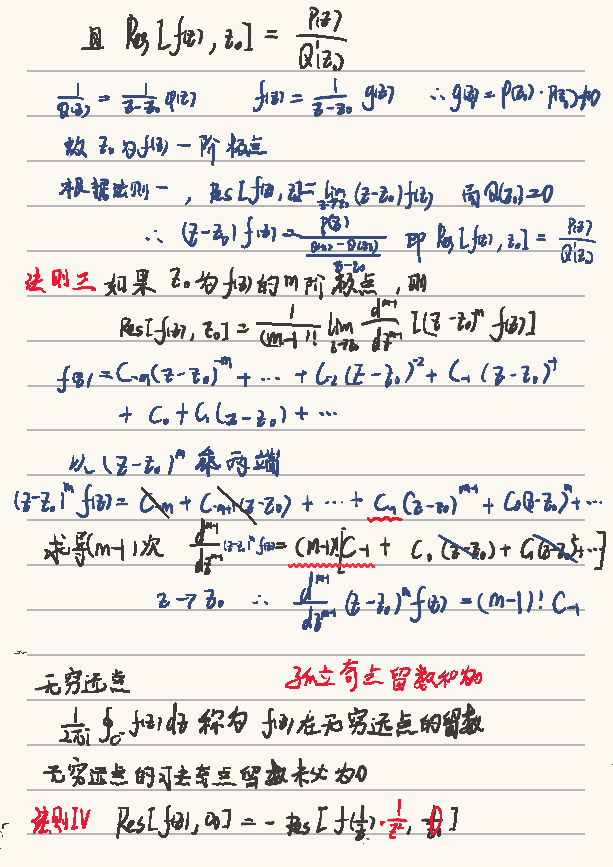 且 Res[f(z), z₀] = P(z₀)/Q'(z₀)
1/Q(z) = 1/(z-z₀) φ(z) f(z) = 1/(z-z₀) g(z) ∴ g(z) = P(z)·φ(z) ≠0
故 z₀ 为 f(z) 一阶极点
根据法则一, Res[f(z), z₀] = lim_{z→z₀} (z-z₀) f(z) 而 Q(z₀)=0
∴ (z-z₀) f(z) = P(z)/((Q(z)-Q(z₀))/(z-z₀)) 即 Res[f(z), z₀] = P(z₀)/Q'(z₀)
法则三 如果 z₀ 为 f(z) 的 m 阶极点, 则
Res[f(z), z₀] = 1/(m-1)! lim_{z→z₀} d^{m-1}/dz^{m-1} [(z-z₀)^m f(z)]
f(z) = C₋ₘ(z-z₀)^{-m} + … + C₋₂(z-z₀)^{-2} + C₋₁(z-z₀)^{-1}
+ C₀ + C₁(z-z₀) + …
以 (z-z₀)^m 乘两端
(z-z₀)^m f(z) = C₋ₘ + C₋ₘ₊₁(z-z₀) + … + C₋₁(z-z₀)^{m-1} + C₀(z-z₀)^m + …
求导(m-1)次 d^{m-1}/dz^{m-1} (z-z₀)^m f(z) = (m-1)![C₋₁ + C₀(z-z₀) + C₁(z-z₀)² + …]
z→z₀ ∴ d^{m-1}/dz^{m-1} (z-z₀)^m f(z) = (m-1)! C₋₁
无穷远点 孤立奇点留数和为0
1/2πi ∮_{C⁻} f(z)dz 称为 f(z) 在无穷远点的留数
无穷远点的可去奇点留数未必为0
法则IV Res[f(z), ∞] = - Res[f(1/z)·1/z², 0]